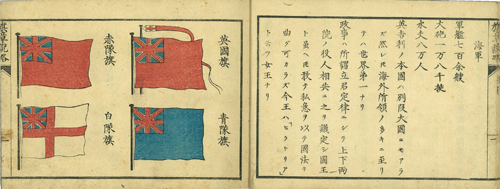 海軍
軍艦七百余艘
大砲一万八千挺
水夫八万人
英吉利ノ本國ハ別段大國ニモアラ
ズ然レ𪜈海外所領ノ多キニ至リ
テハ世界第一ナリ
政事ハ所謂立君定律ニシテ上下両
院ノ役人相共ニ之ヲ議定シ國王
ト虽𪜈敢テ私意ヲ以テ國法ヲ
曲グ可カラズ今王ハ「ヒクトリア」
ト云フ女王ナリ
英國旗
赤隊旗
青隊旗
白隊旗